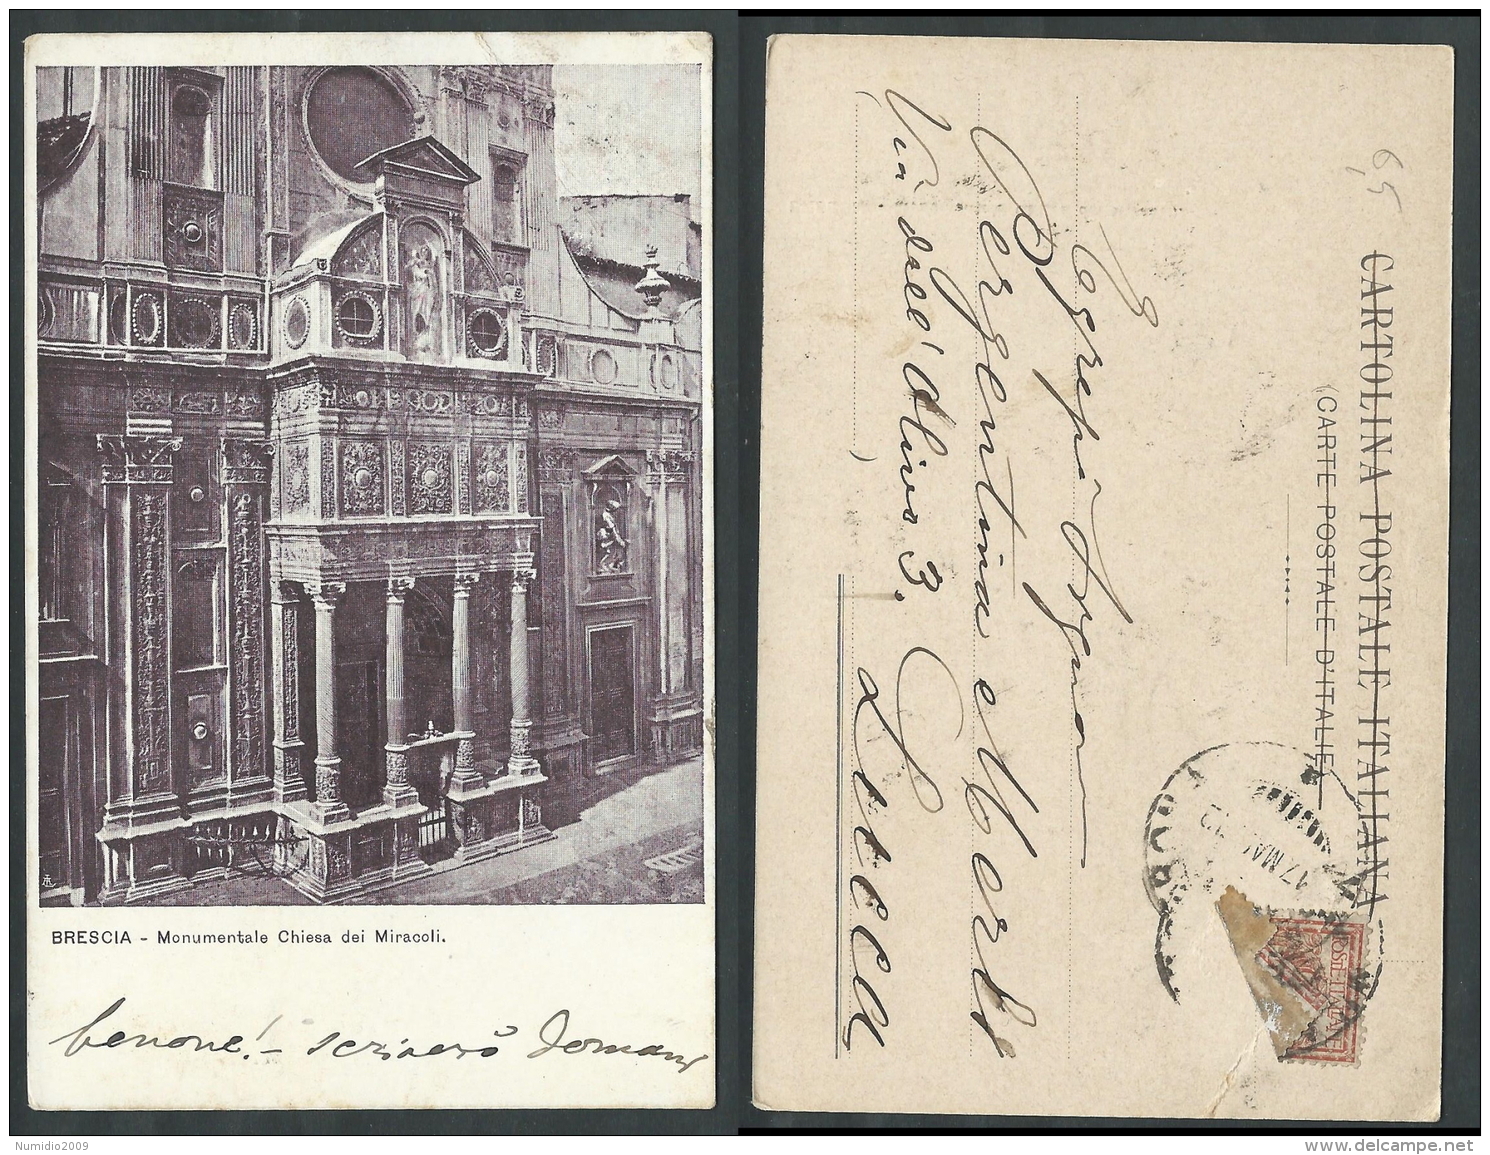 BRESCIA - Monumentale Chiesa dei Miracoli.
benone! - scriverò domani
Numidio2009
CARTOLINA POSTALE ITALIANA
(CARTE POSTALE D'ITALIE)
65
Argentina e
(Via dell' Olivo 3.)
Lucca
17 MAG
POSTE ITALIANE
www.delcampe.net